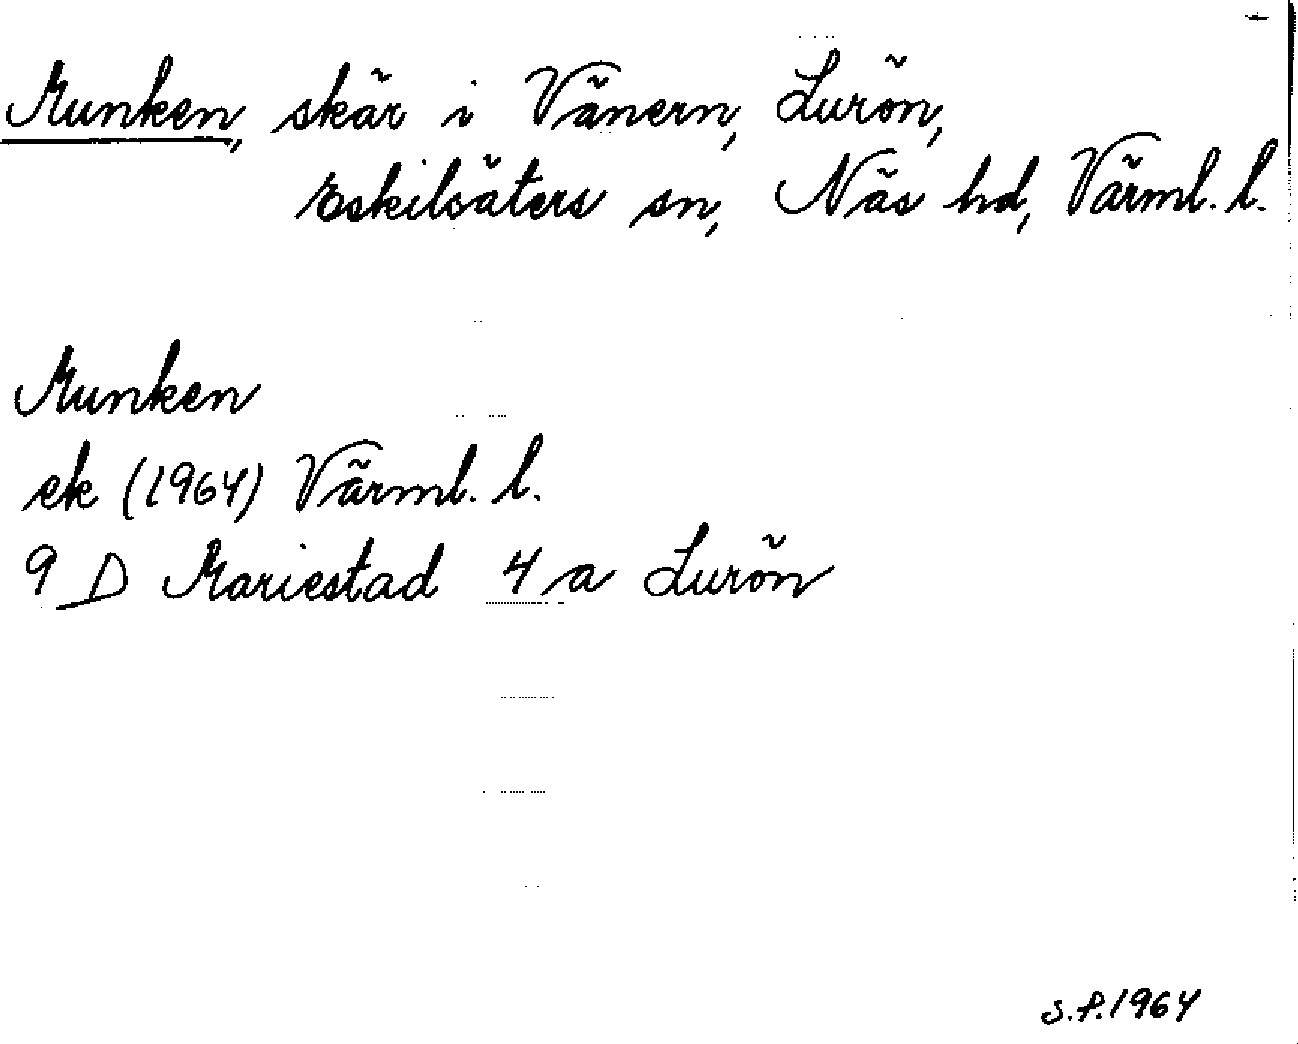 Munken, skär i Vänern, Lurön,
Eskilsäters sn, Näs hd, Värml. l.
Munken
ek (1964) Värml. l.
9 D Mariestad 4 a Lurön
S.F. 1964